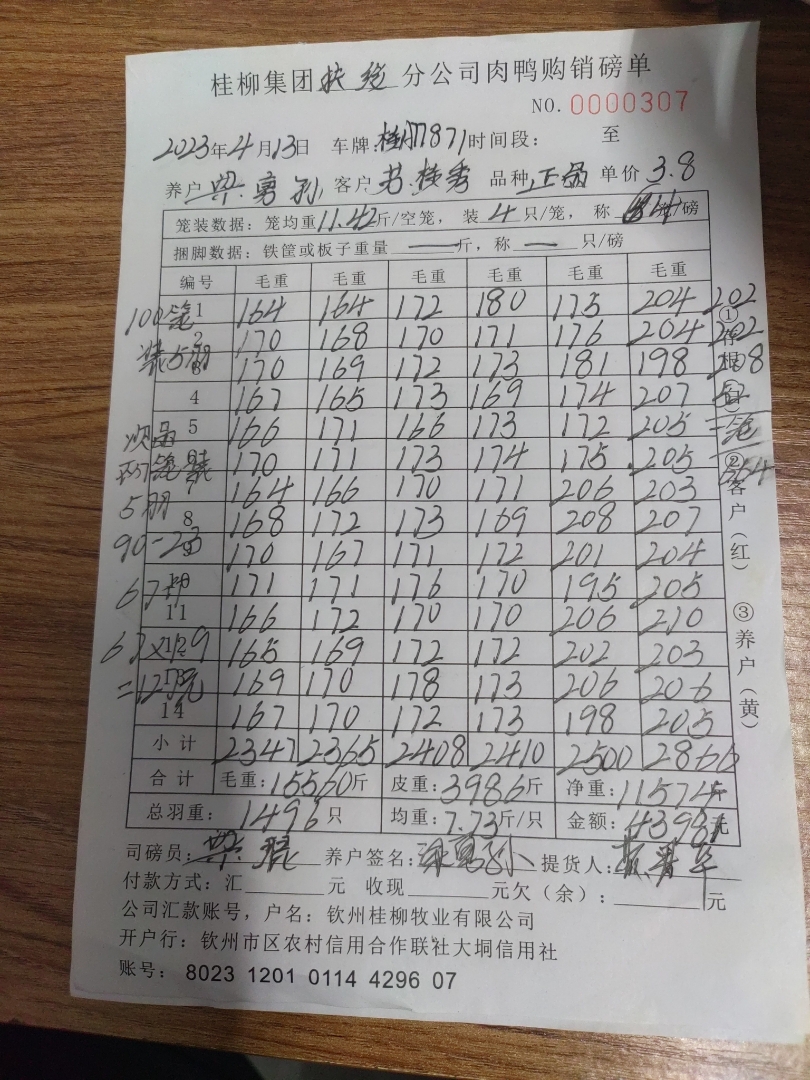 桂柳集团 分公司肉鸭购销磅单
NO. 0000307
2023年4月13日 车牌: 7871 时间段: 至
养户 客户 品种 单价 3.8
笼装数据: 笼均重11.42斤/空笼, 装4只/笼, 称 /磅
捆脚数据: 铁筐或板子重量 — 斤, 称 — 只/磅
编号 毛重 毛重 毛重 毛重 毛重 毛重
1 164 164 172 180 175 204 202
2 170 168 170 171 176 204 202
3 170 169 172 173 181 198 208
4 167 165 173 169 174 207
5 166 171 166 173 172 205
6 170 171 173 174 175 205
7 164 166 170 171 206 203
8 168 172 173 169 208 207
9 170 167 171 172 201 204
10 171 171 176 170 195 205
11 166 172 170 170 206 210
12 165 169 172 172 202 203
13 169 170 178 173 206 206
14 167 170 172 173 198 205
小计 2347 2365 2408 2410 2866
合计 毛重: 15560斤 皮重: 3986斤 净重: 11574斤
总羽重: 1496只 均重: 7.73斤/只 金额: 元
100笼
装5羽
5羽
90-23
①存根(白) ②客户(红) ③养户(黄)
司磅员: 养户签名: 提货人:
付款方式: 汇 元 收现 元欠(余): 元
公司汇款账号, 户名: 钦州桂柳牧业有限公司
开户行: 钦州市区农村信用合作联社大垌信用社
账号: 8023 1201 0114 4296 07